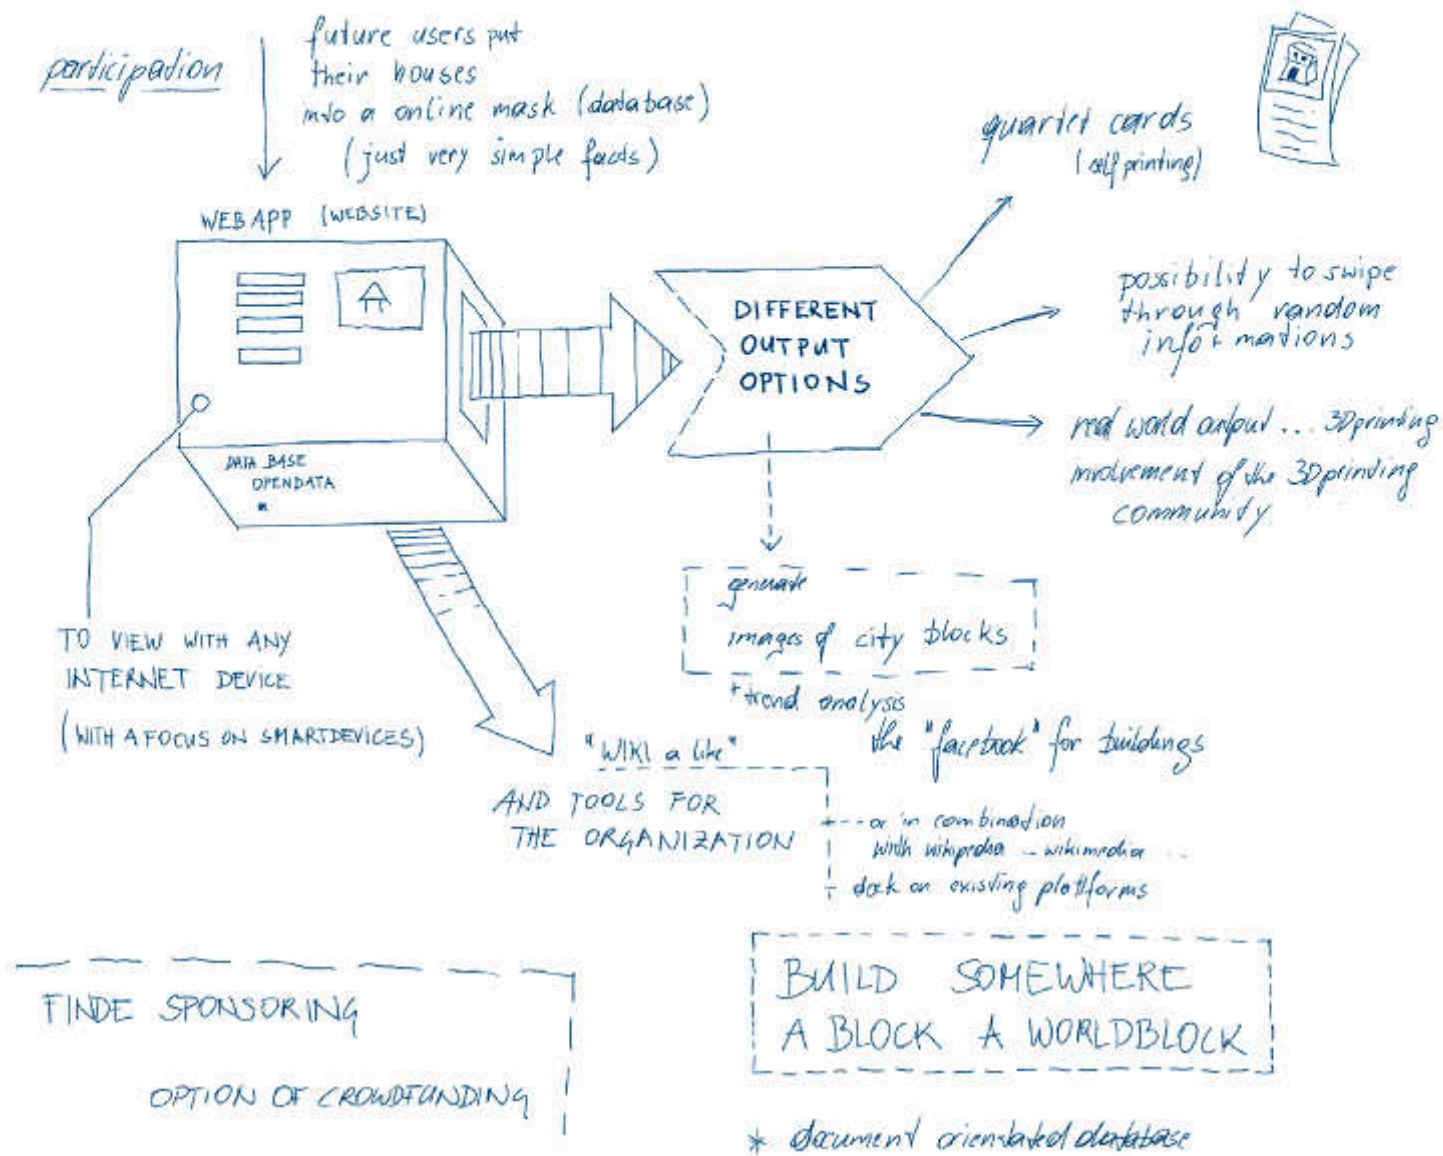 participation
future users put
their houses
into a online mask (database)
(just very simple facts)
WEBAPP (WEBSITE)
DATA BASE
OPENDATA
*
TO VIEW WITH ANY
INTERNET DEVICE
(WITH A FOCUS ON SMARTDEVICES)
DIFFERENT
OUTPUT
OPTIONS
quartet cards
(self printing)
possibility to swipe
through random
informations
real world output ... 3Dprinting
involvement of the 3Dprinting
community
generate
images of city blocks
+ trend analysis
the "facebook" for buildings
"WIKI a like"
AND TOOLS FOR
THE ORGANIZATION
or in combination
with wikipedia - wikimedia ...
dock on existing plattforms
FINDE SPONSORING
OPTION OF CROWDFUNDING
BUILD SOMEWHERE
A BLOCK A WORLDBLOCK
* document orientated database